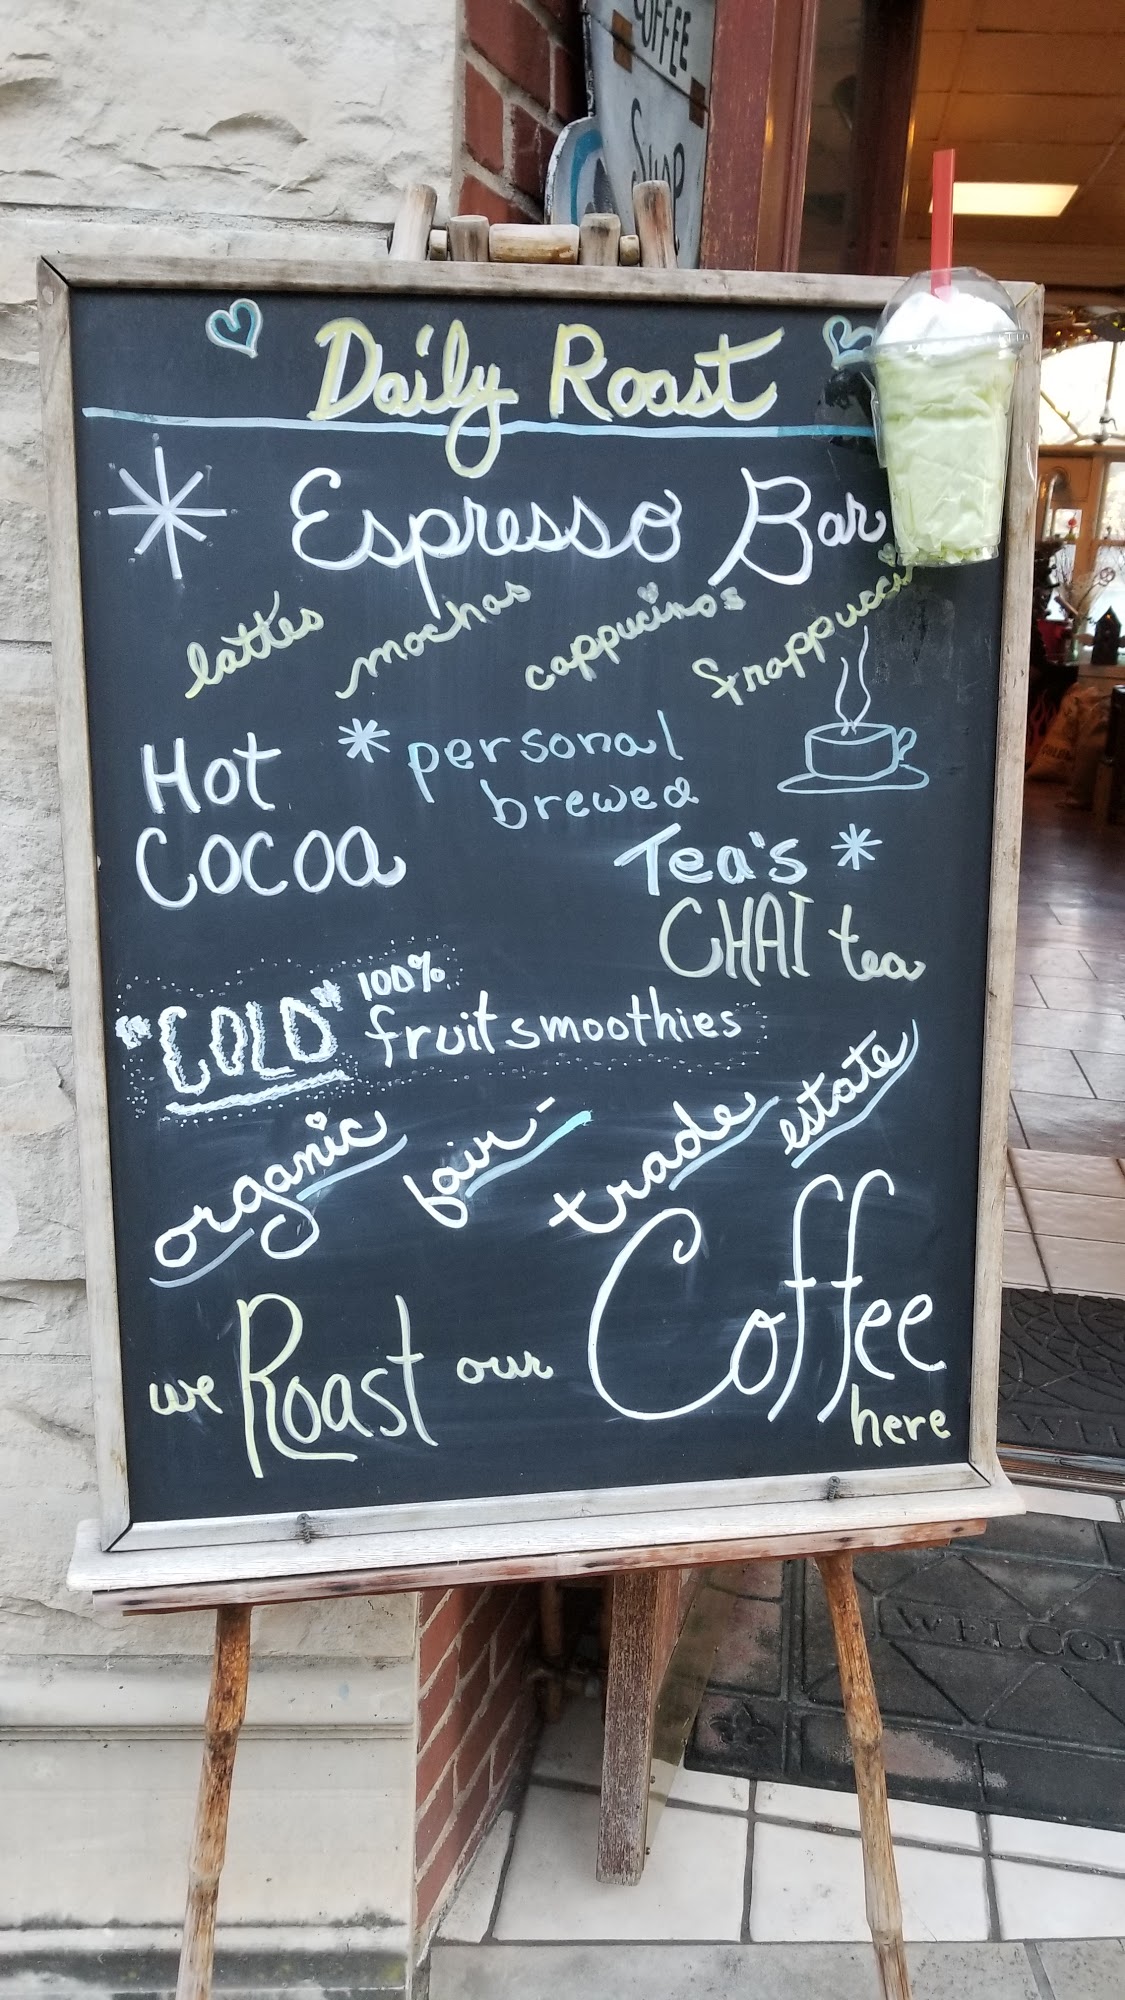 COFFEE
SHOP
Daily Roast
* Espresso Bar
lattes mochas cappucinos frappucci
Hot
Cocoa
* personal
brewed
Tea's *
CHAI tea
"COLD" 100%
fruit smoothies
organic fair-trade estate
we Roast our Coffee
here
WELCO